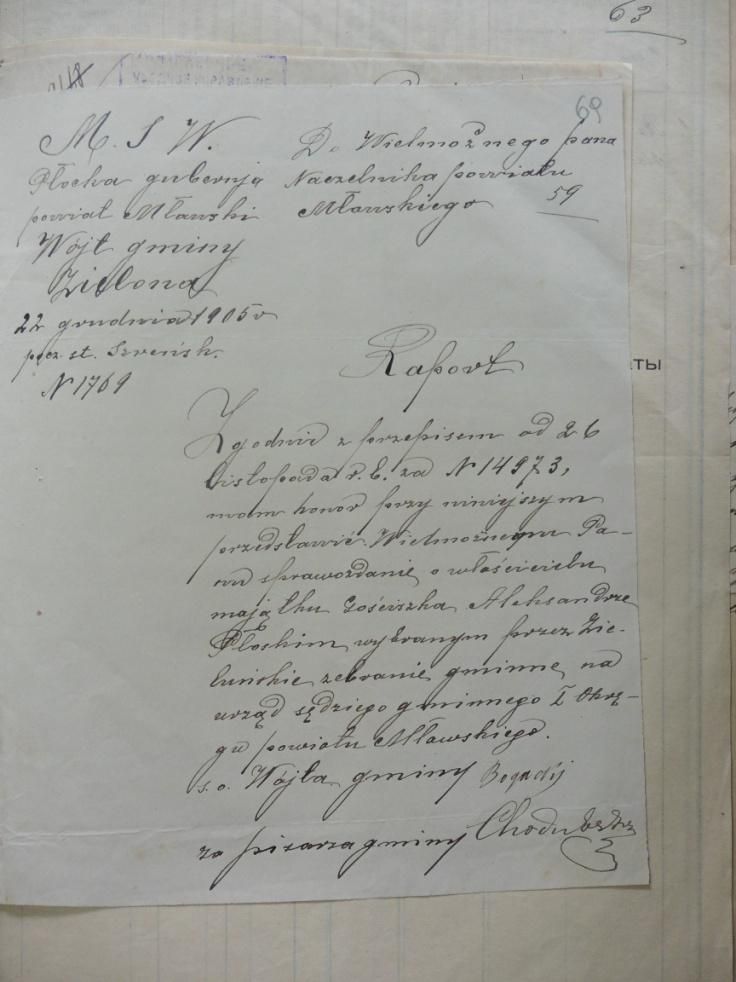 63
69
M. S W.
Płocka gubernja
powiat Mławski
Wójt gminy
Zielona
22 grudnia 1905 r
pocz. st. Szreńsk.
N 1769
Do Wielmożnego pana
Naczelnika powiatu
Mławskiego
59
Raport
Zgodnie z przepisem od 26
listopada r. b. za N 14973,
mam honor przy niniejszym
przedstawić Wielmożnemu Pa-
nu sprawozdanie o właścicielu
majątku Gościszka Aleksandrze
Płoskim wybranym przez Zie-
luńskie zebranie gminne na
urząd sędziego gminnego I Okrę-
gu powiatu Mławskiego.
s. o. Wójta gminy
za pisarza gminy
ты